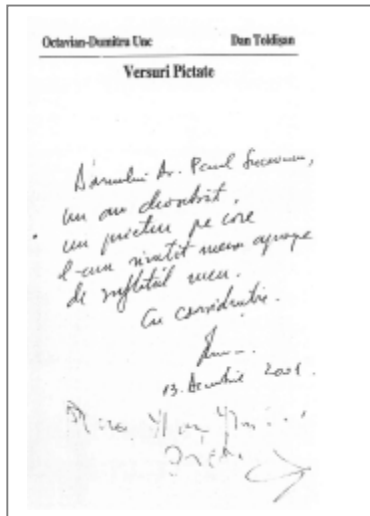 Octavian-Dumitru Unc Dan Toldișan
Versuri Pictate
Domnului Dr. Paul
un om deosebit,
un prieten pe care
l-am simțit mereu aproape
de sufletul meu.
Cu considerație.
13. Decembrie 2001.